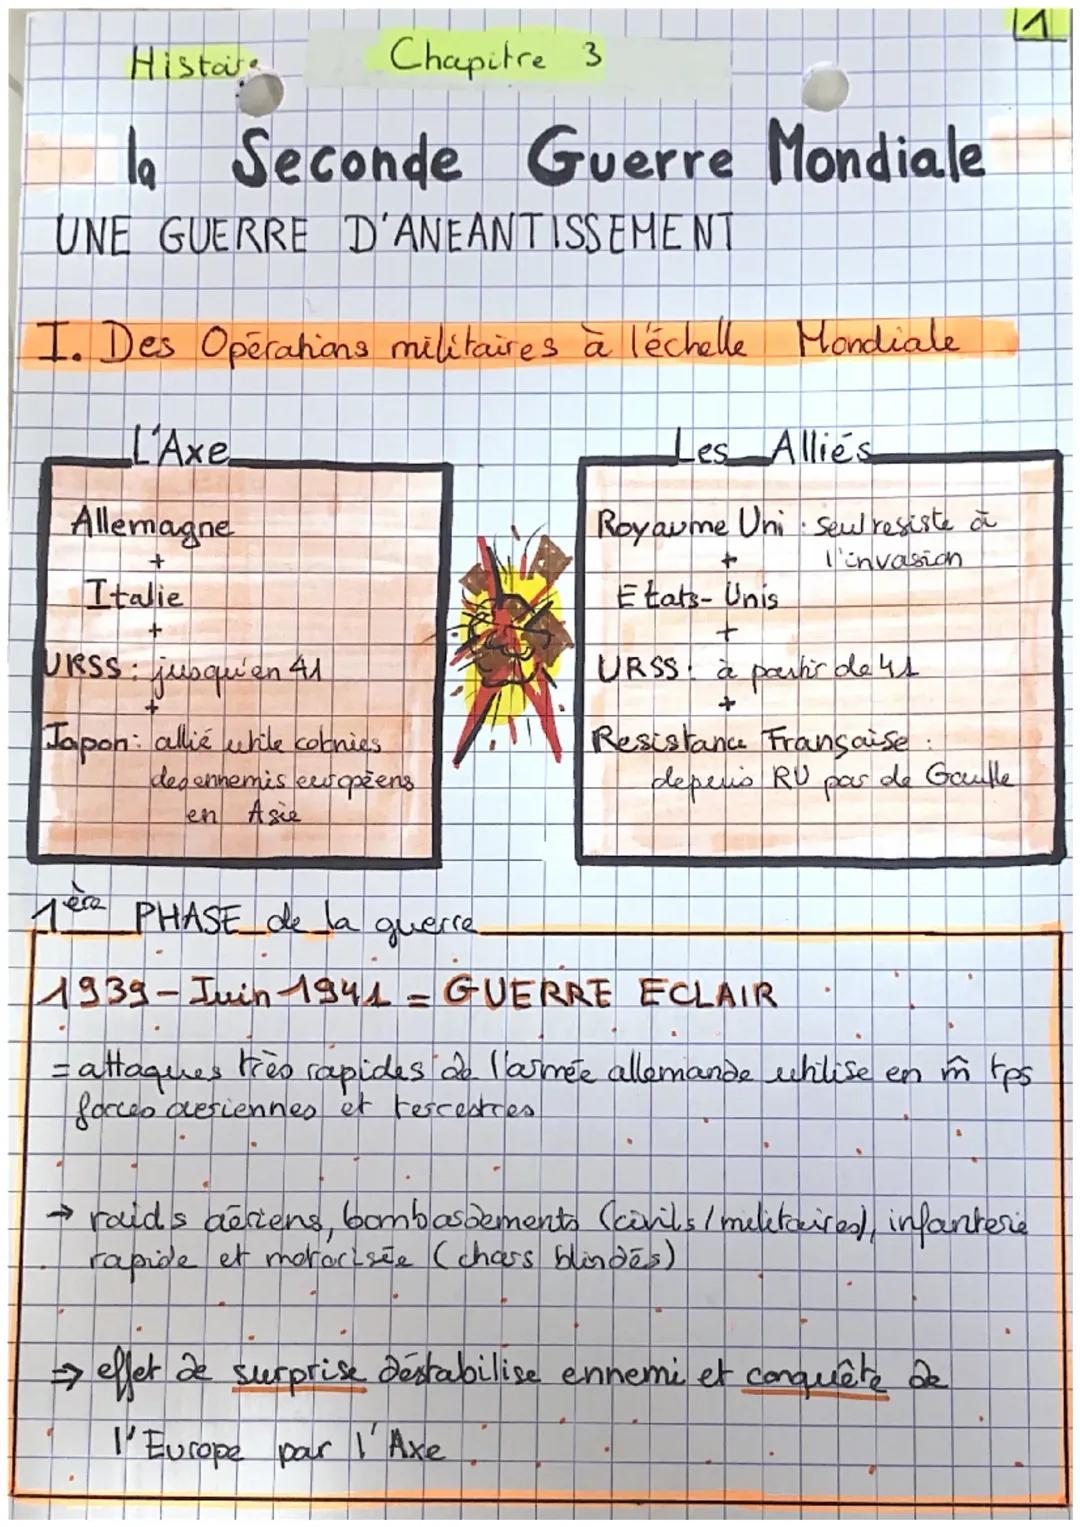 1
Histoire
Chapitre 3
la Seconde Guerre Mondiale
UNE GUERRE D'ANEANTISSEMENT
I. Des Opérations militaires à l'échelle Mondiale
L'Axe
Allemagne
+
Italie
+
URSS : jusqu'en 41
+
Japon : allié utile colonies
des ennemis européens
en Asie
Les Alliés
Royaume Uni : seul resiste à
l'invasion
+
Etats-Unis
+
URSS : à partir de 41
+
Resistance Française :
depuis RU par de Gaulle
1ère PHASE de la guerre
1939 - Juin 1941 = GUERRE ECLAIR
= attaques très rapides de l'armée allemande utilise en m̂ tps
forces aeriennes et terrestres
→ raids aériens, bombardements (civils/militaires), infanterie
rapide et motorisée (chars blindés)
⇒ effet de surprise déstabilise ennemi et conquête de
l'Europe par l'Axe